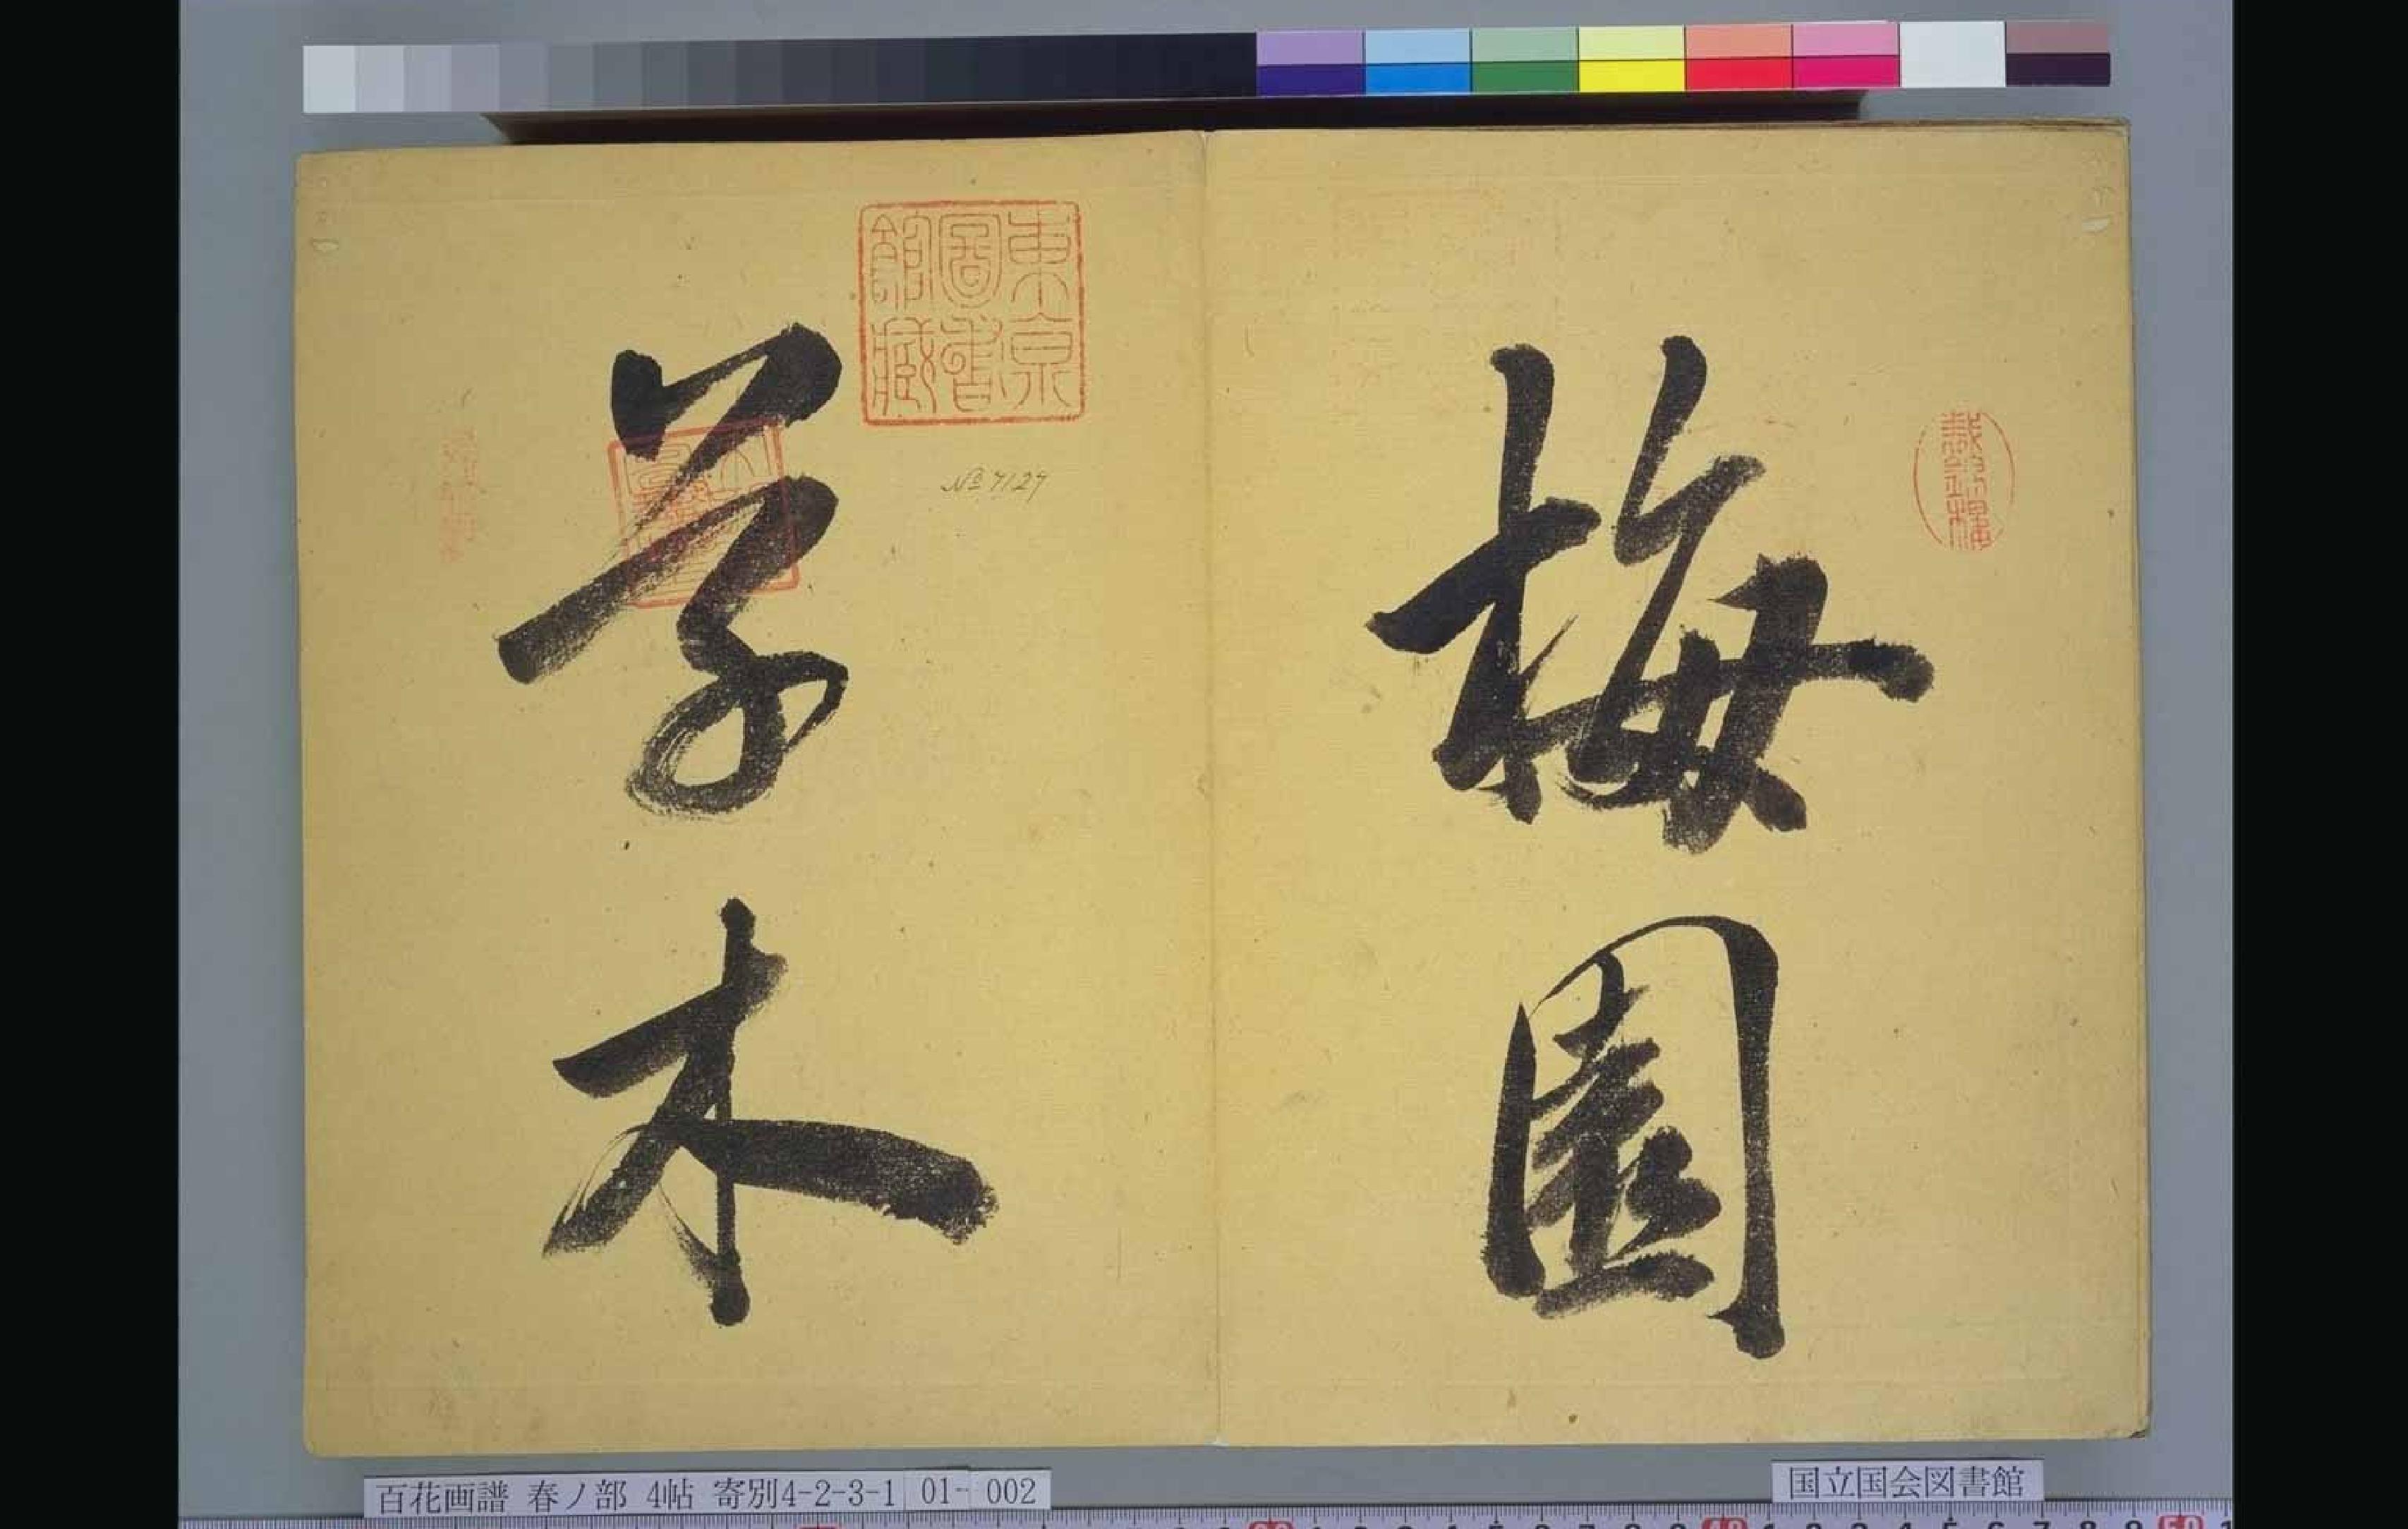 梅園
草木
東京
圖書
館藏
No 7127
百花画譜 春ノ部 4帖 寄別4-2-3-1 01- 002
国立国会図書館